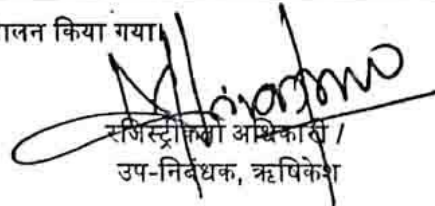 ालन किया गया।
रजिस्ट्रीकर्ता अधिकारी /
उप-निबंधक, ऋषिकेश